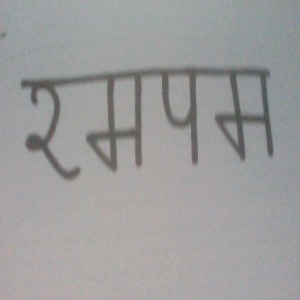 रमपम